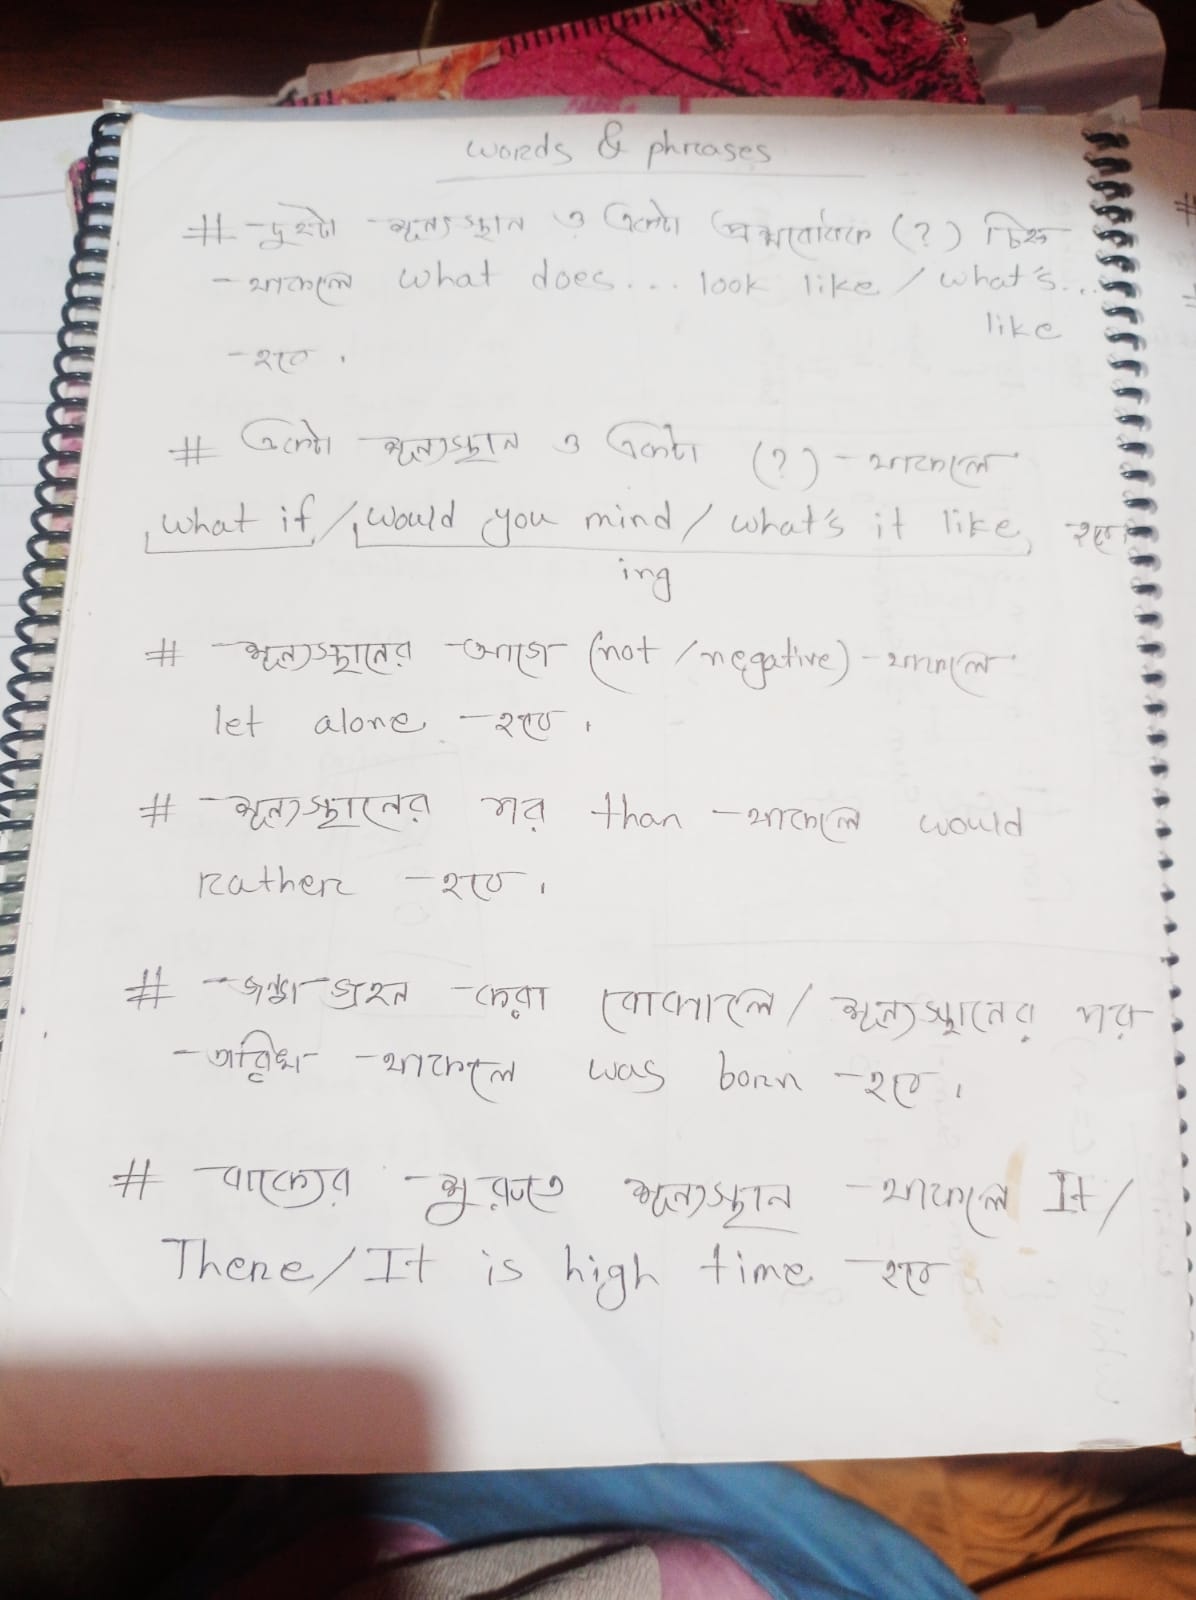 words & phrases
# দুইটা শূন্যস্থান ও একটা প্রশ্নবোধক (?) চিহ্ন
থাকলে what does... look like / what's...
like
হবে।
# একটা শূন্যস্থান ও একটা (?) থাকলে
what if / would you mind / what's it like হবে।
ing
# শূন্যস্থানের আগে (not / negative) থাকলে
let alone হবে।
# শূন্যস্থানের পর than থাকলে would
rather হবে।
# জন্মগ্রহন করা বোঝালে / শূন্যস্থানের পর
তারিখ থাকলে was born হবে।
# বাক্যের শুরুতে শূন্যস্থান থাকলে It /
There / It is high time হবে